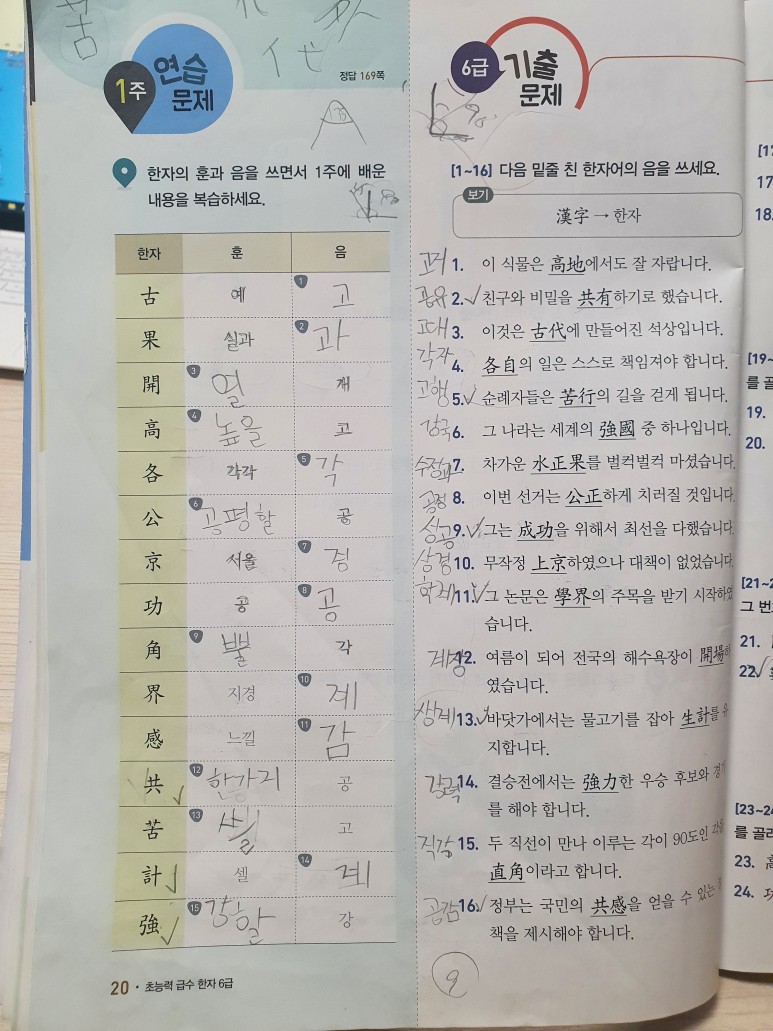 苦
代
1주 연습 문제
정답 169쪽
한자의 훈과 음을 쓰면서 1주에 배운
내용을 복습하세요.
한자 훈 음
古 예 1 고
果 실과 2 과
開 3 열 개
高 4 높을 고
各 각각 5 각
公 6 공평할 공
京 서울 7 경
功 공 8 공
角 9 뿔 각
界 지경 10 계
感 느낄 11 감
共 12 한가지 공
苦 13 쓸 고
計 셀 14 계
強 15 강할 강
20 • 초능력 급수 한자 6급
6급 기출 문제
[1~16] 다음 밑줄 친 한자어의 음을 쓰세요.
보기
漢字 → 한자
고지 1. 이 식물은 高地에서도 잘 자랍니다.
공유 2. 친구와 비밀을 共有하기로 했습니다.
고대 3. 이것은 古代에 만들어진 석상입니다.
각자 4. 各自의 일은 스스로 책임져야 합니다.
고행 5. 순례자들은 苦行의 길을 걷게 됩니다.
강국 6. 그 나라는 세계의 強國 중 하나입니다.
수정과 7. 차가운 水正果를 벌컥벌컥 마셨습니다.
공정 8. 이번 선거는 公正하게 치러질 것입니다
성공 9. 그는 成功을 위해서 최선을 다했습니다
상경 10. 무작정 上京하였으나 대책이 없었습니다
학계 11. 그 논문은 學界의 주목을 받기 시작하였
습니다.
12. 여름이 되어 전국의 해수욕장이 開場하
였습니다.
13. 바닷가에서는 물고기를 잡아 生計를 유
지합니다.
강력 14. 결승전에서는 強力한 우승 후보와 경기
를 해야 합니다.
직각 15. 두 직선이 만나 이루는 각이 90도인 각을
直角이라고 합니다.
공감 16. 정부는 국민의 共感을 얻을 수 있는
책을 제시해야 합니다.
9
[17
17
18.
[19~
를 골
19.
20.
[21~2
그 번호
21.
22.
[23~24
를 골라
23. 高
24. 功